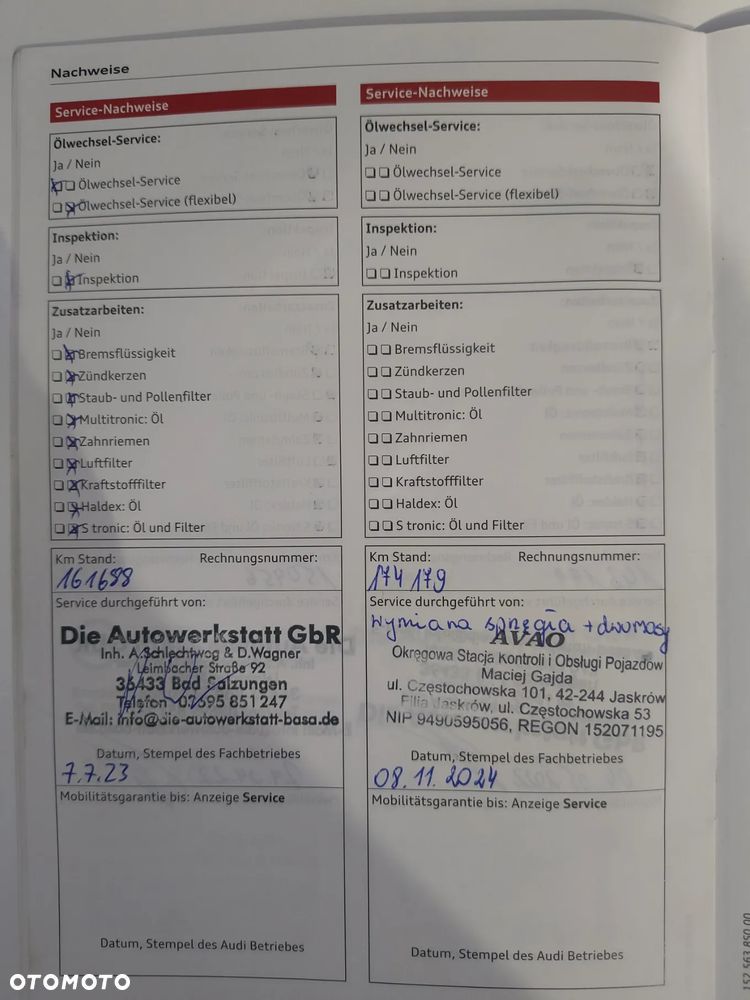 Nachweise
Service-Nachweise
Ölwechsel-Service:
Ja / Nein
Ölwechsel-Service
Ölwechsel-Service (flexibel)
Inspektion:
Ja / Nein
Inspektion
Zusatzarbeiten:
Ja / Nein
Bremsflüssigkeit
Zündkerzen
Staub- und Pollenfilter
Multitronic: Öl
Zahnriemen
Luftfilter
Kraftstofffilter
Haldex: Öl
S tronic: Öl und Filter
Km Stand: Rechnungsnummer:
161688
Service durchgeführt von:
Die Autowerkstatt GbR
Inh. A.Schlechtweg & D.Wagner
Leimbacher Straße 92
36433 Bad Salzungen
Telefon 03695 851 247
E-Mail: info@die-autowerkstatt-basa.de
Datum, Stempel des Fachbetriebes
7.7.23
Mobilitätsgarantie bis: Anzeige Service
Datum, Stempel des Audi Betriebes
Service-Nachweise
Ölwechsel-Service:
Ja / Nein
Ölwechsel-Service
Ölwechsel-Service (flexibel)
Inspektion:
Ja / Nein
Inspektion
Zusatzarbeiten:
Ja / Nein
Bremsflüssigkeit
Zündkerzen
Staub- und Pollenfilter
Multitronic: Öl
Zahnriemen
Luftfilter
Kraftstofffilter
Haldex: Öl
S tronic: Öl und Filter
Km Stand: Rechnungsnummer:
174 179
Service durchgeführt von:
Wymiana sprzęgła + dwumasy
AVAO
Okręgowa Stacja Kontroli i Obsługi Pojazdów
Maciej Gajda
ul. Częstochowska 101, 42-244 Jaskrów
Filia Jaskrów, ul. Częstochowska 53
NIP 9490595056, REGON 152071195
Datum, Stempel des Fachbetriebes
08.11.2024
Mobilitätsgarantie bis: Anzeige Service
Datum, Stempel des Audi Betriebes
152.563.850.00
OTOMOTO